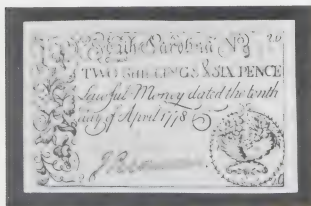 South Carolina No
TWO SHILLINGS & SIX PENCE
Lawful Money dated the tenth
day of April 1778